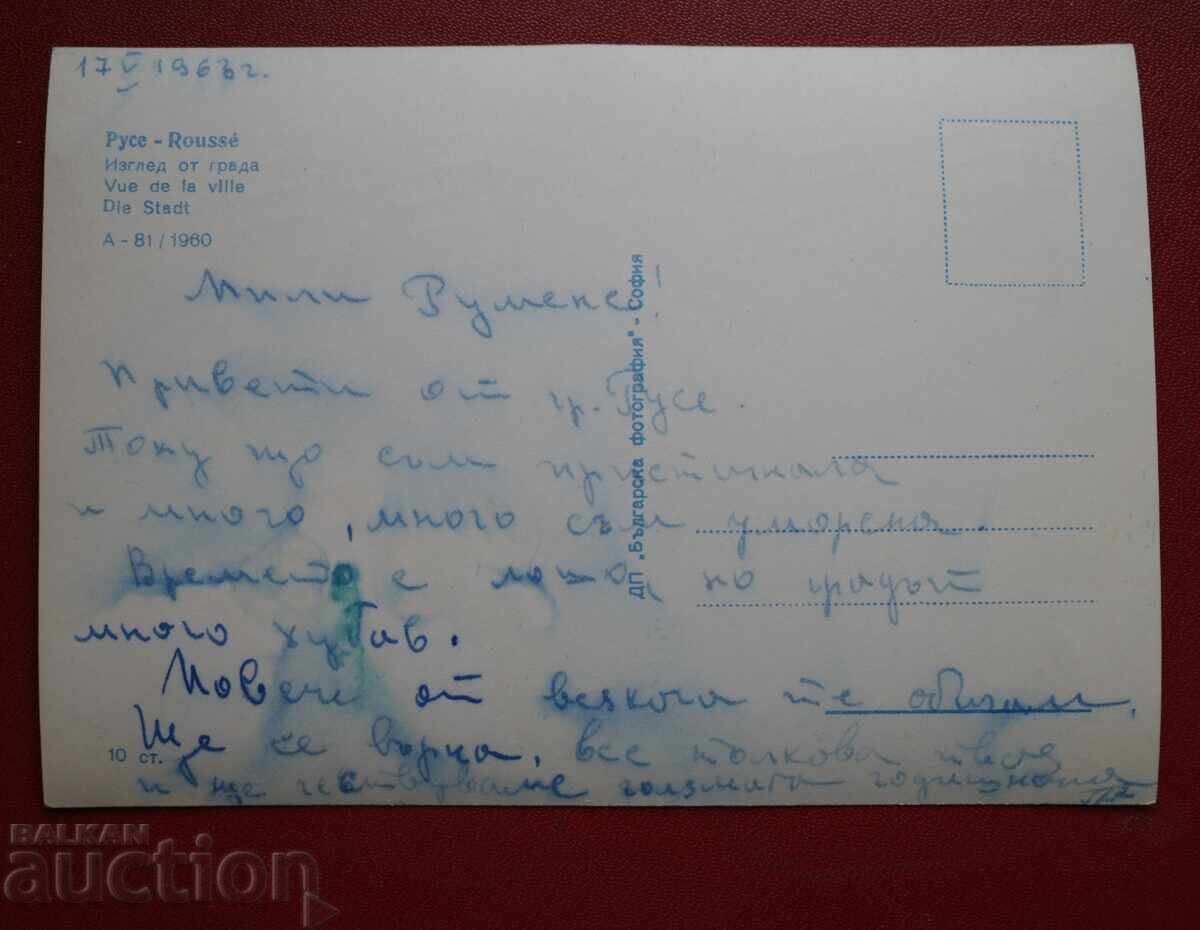 17 V 1963 г.
Русе - Roussé
Изглед от града
Vue de la ville
Die Stadt
А - 81 / 1960
Мили Румене!
Привети от гр. Русе.
Току що съм пристигнала
и много, много съм уморена.
Времето е лошо, но градът
много хубав.
Повече от всякога те обичам.
Ще се върна, все толкова твоя
и ще чествуваме голямата годишнина
10 ст.
ДП „Българска фотография" - София
BALKAN
auction